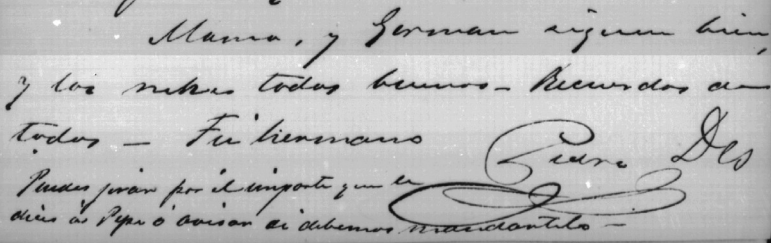 Mama, y German siguen bien,
y los nenes todos buenos - Recuerdos de
todos - Tu hermano Pedro
Puedes girar por el importe que le
dices à Pepe ó avisar si debemos mandartelo -